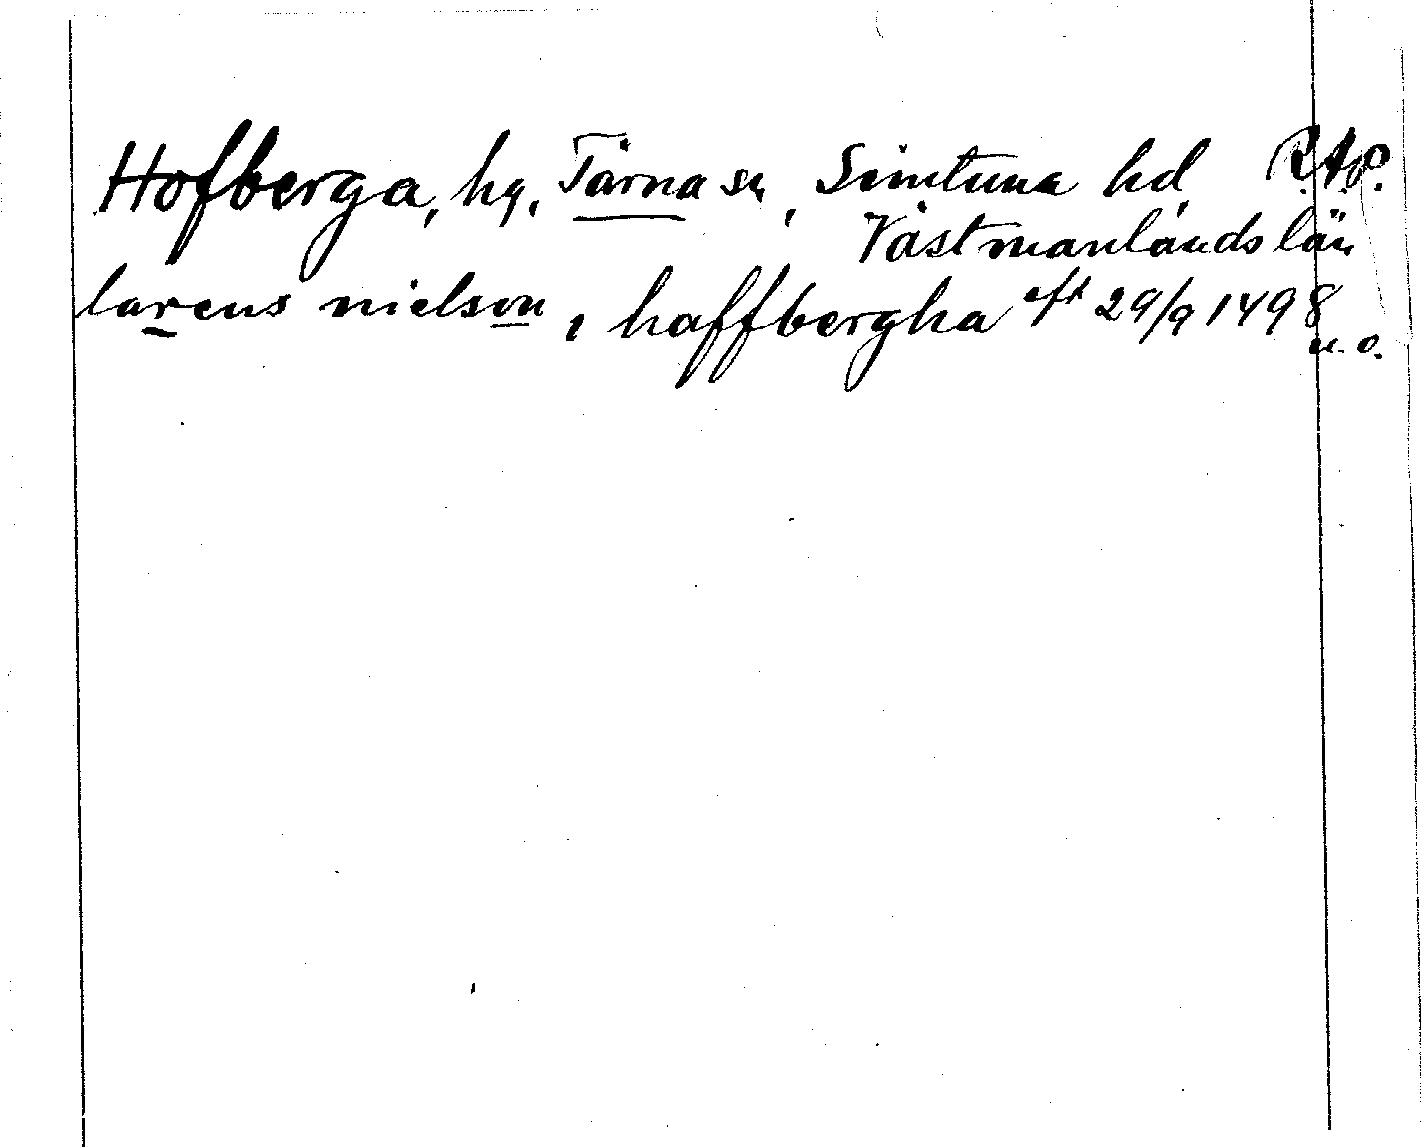 Hofberga, hg, Tärna sn, Simtuna hd, R.A.P.
Västmanlands län
larens nielson, i haffbergha eft 29/9 1498
u. o.